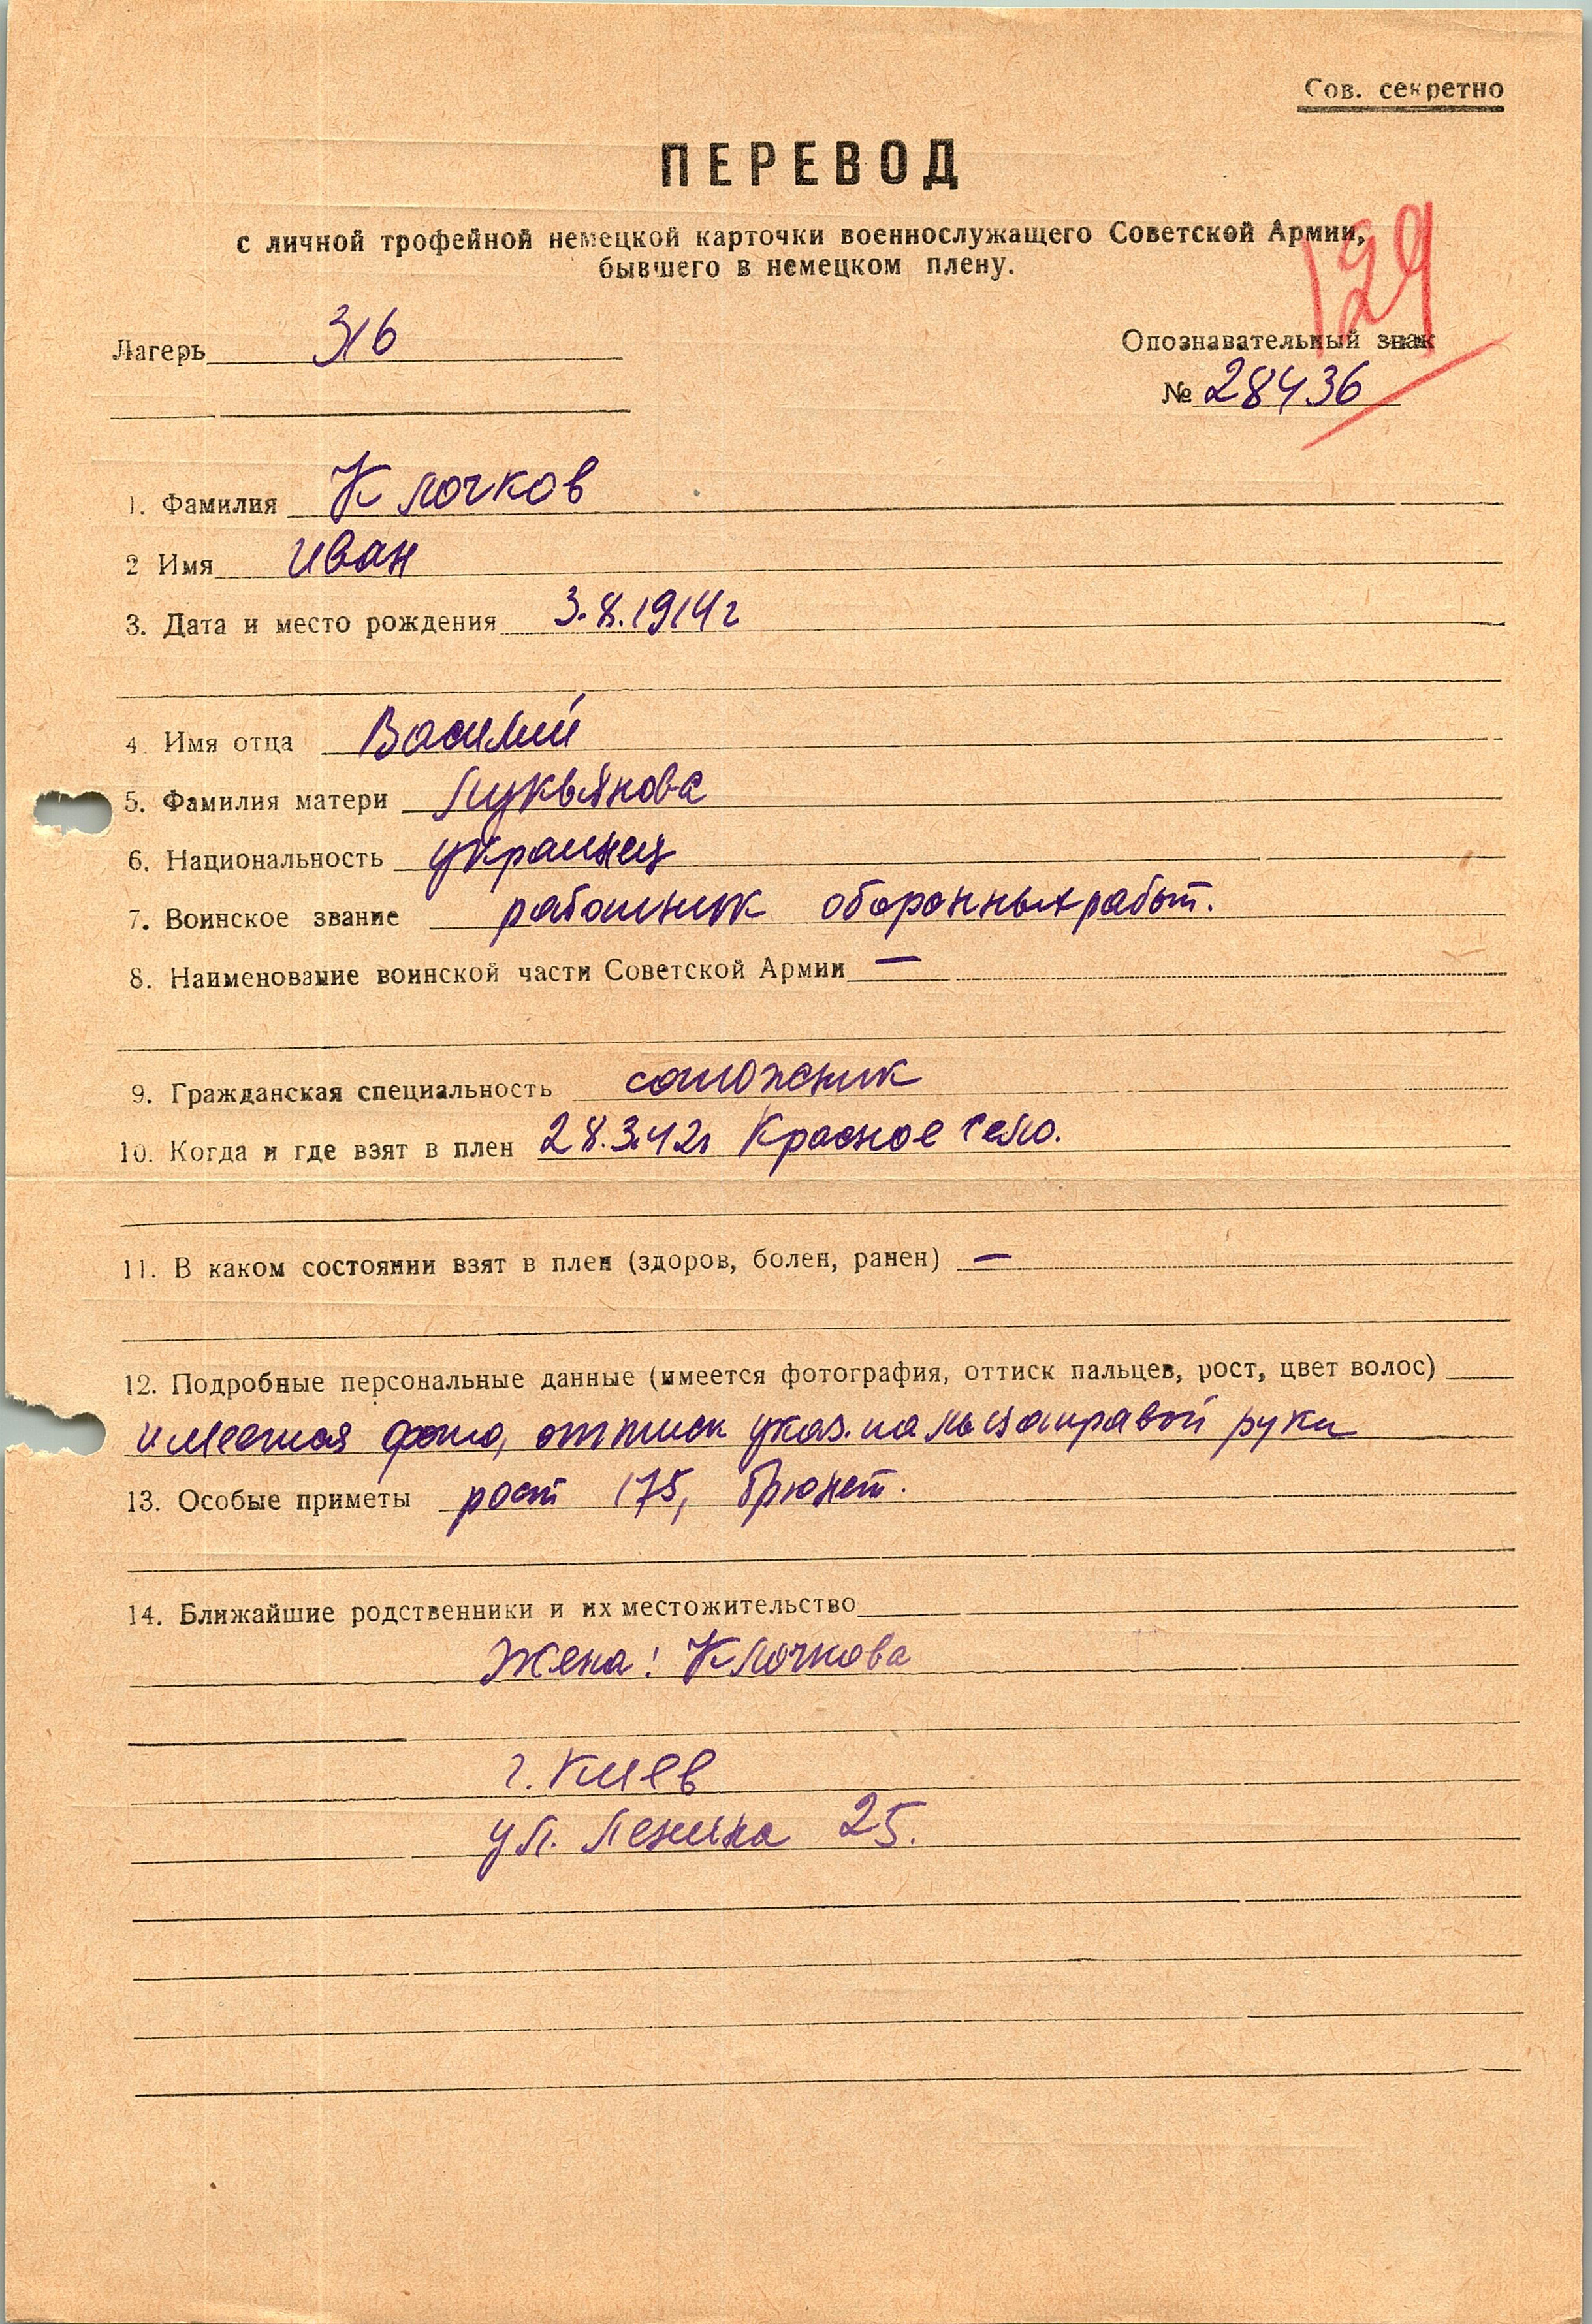 Сов. секретно
ПЕРЕВОД
с личной трофейной немецкой карточки военнослужащего Советской Армии,
бывшего в немецком плену.
129
Лагерь 316
Опознавательный знак
№ 28436
1. Фамилия Клочков
2 Имя Иван
3. Дата и место рождения 3.8.1914г
4. Имя отца Василий
5. Фамилия матери Лукьянова
6. Национальность украинец
7. Воинское звание работник оборонных работ.
8. Наименование воинской части Советской Армии —
9. Гражданская специальность сапожник
10. Когда и где взят в плен 28.3.42г Красное село.
11. В каком состоянии взят в плен (здоров, болен, ранен) —
12. Подробные персональные данные (имеется фотография, оттиск пальцев, рост, цвет волос)
имеется фото, оттиск указ. пальца правой руки
13. Особые приметы рост 175, брюнет.
14. Ближайшие родственники и их местожительство
Жена: Клочкова
г. Киев
ул. Ленина 25.